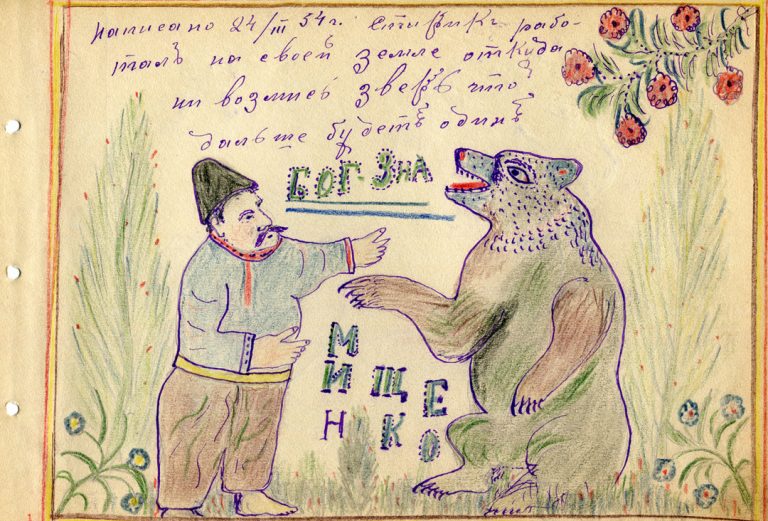 написано 24/III 54г. Старикъ рабо-
талъ на своей земле откуда
ни возмись зверъ что
дальше будетъ одинъ
БОГ ЗНА
М
ИЩЕ
НКО